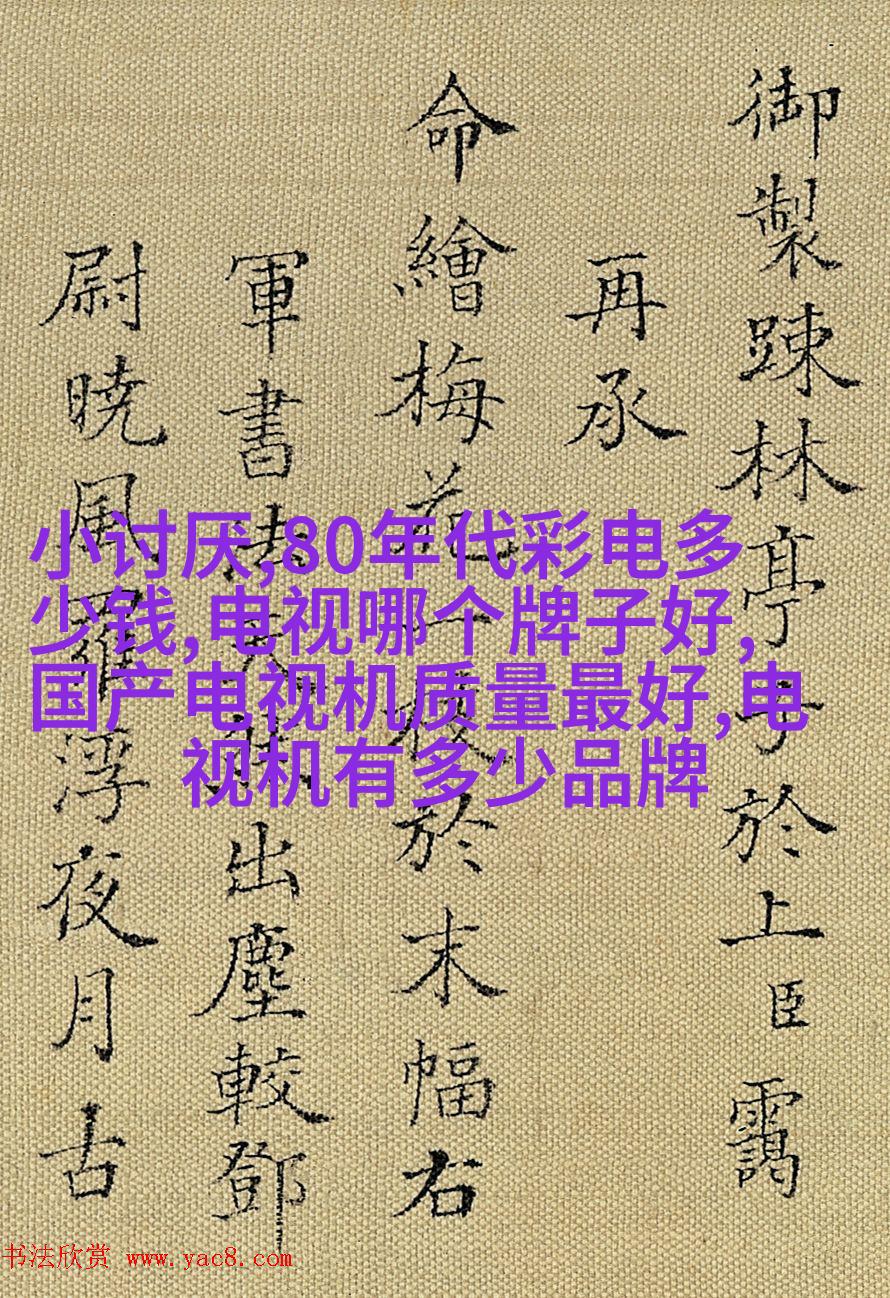 御製踈林亭子於上臣靄
再承
命繪梅花一枝於末幅右
軍書法出塵較鄧
尉曉風羅浮夜月古
小讨厌,80年代彩电多
少钱,电视哪个牌子好,
国产电视机质量最好,电
视机有多少品牌
书法欣赏 www.yac8.com